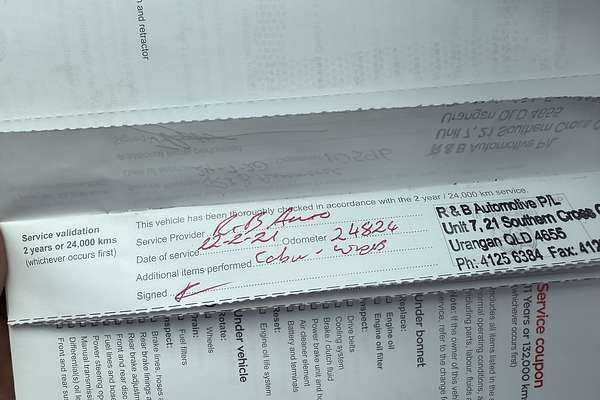 n and retractor
Service validation
2 years or 24,000 kms
(whichever occurs first)
This vehicle has been thoroughly checked in accordance with the 2 year / 24,000 km service.
Service Provider R B Auto
Date of service 22-2-21 Odometer 24824
Additional items performed
Signed
R & B Automotive P/L
Unit 7, 21 Southern Cross C
Urangan QLD 4655
Ph: 4125 6384 Fax: 412
Service coupon
11 Years or 132,000 km
(whichever occurs first)
Includes all items listed in the
normal operating conditions, a
including parts, labour, fluids a
Note: If the owner of this vehic
service, refer to the change f
Under bonnet
Replace:
Engine oil
Engine oil filter
Inspect:
Drive belts
Cooling system
Brake / clutch fluid
Power brake unit and h
Air cleaner element
Battery and terminals
Reset:
Engine oil life system
Under vehicle
Rotate:
Wheels
Drain:
Fuel filters
Inspect:
Brake lines, hoses a
Rear brake linings a
Rear brake adjustm
Front and rear disc
Fuel lines and hos
Power steering
Manual transmiss
Differential(s) oil le
Front and rear su